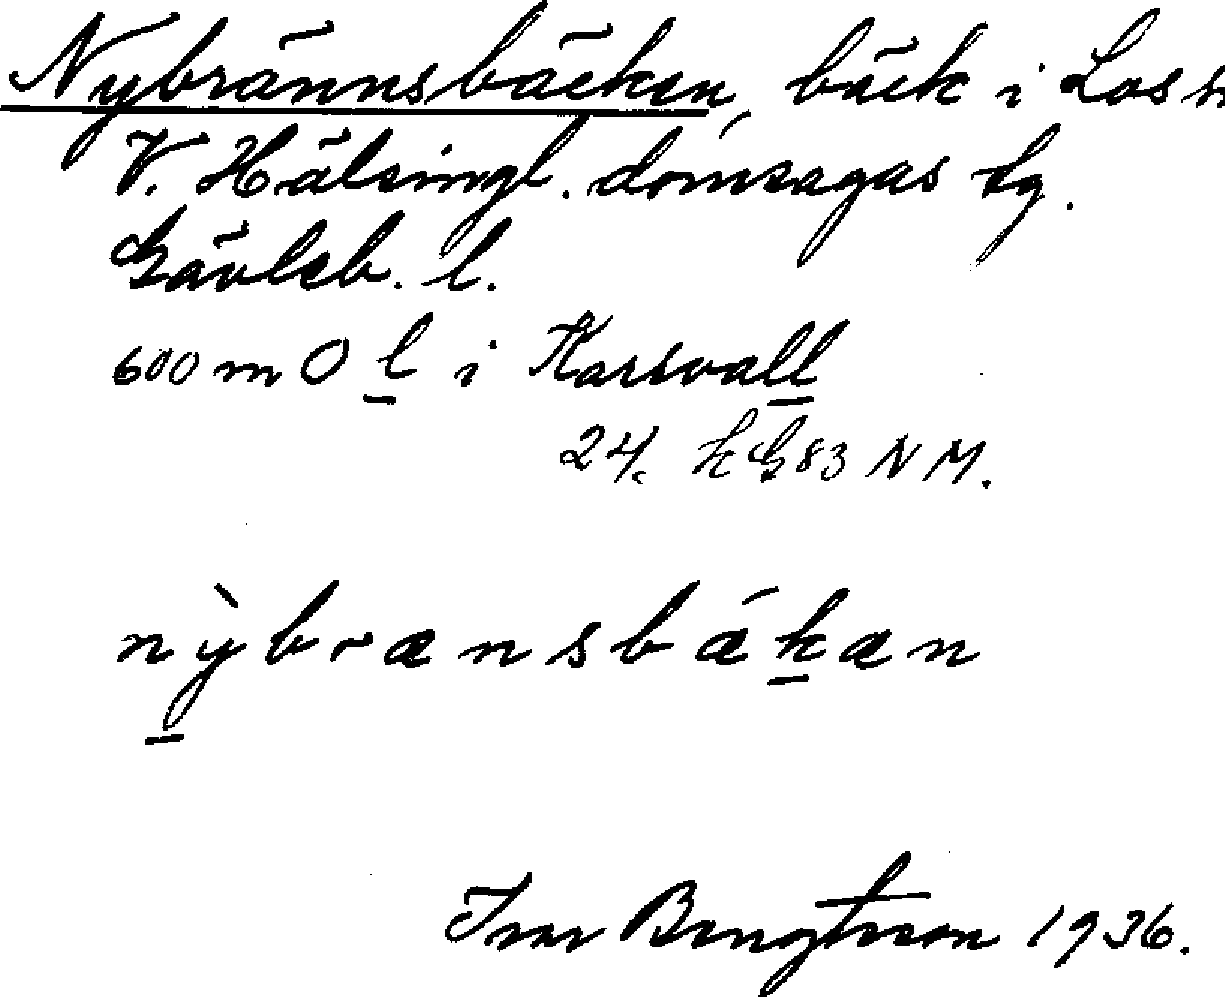 Nybrännsbäcken, bäck i Los s
V. Hälsingl. domsagas tg.
Gävleb. l.
600 m O l i Karsvall
24. k G 83 N M.
nỳbrænsbækæn
Ivar Bengtsson 1936.